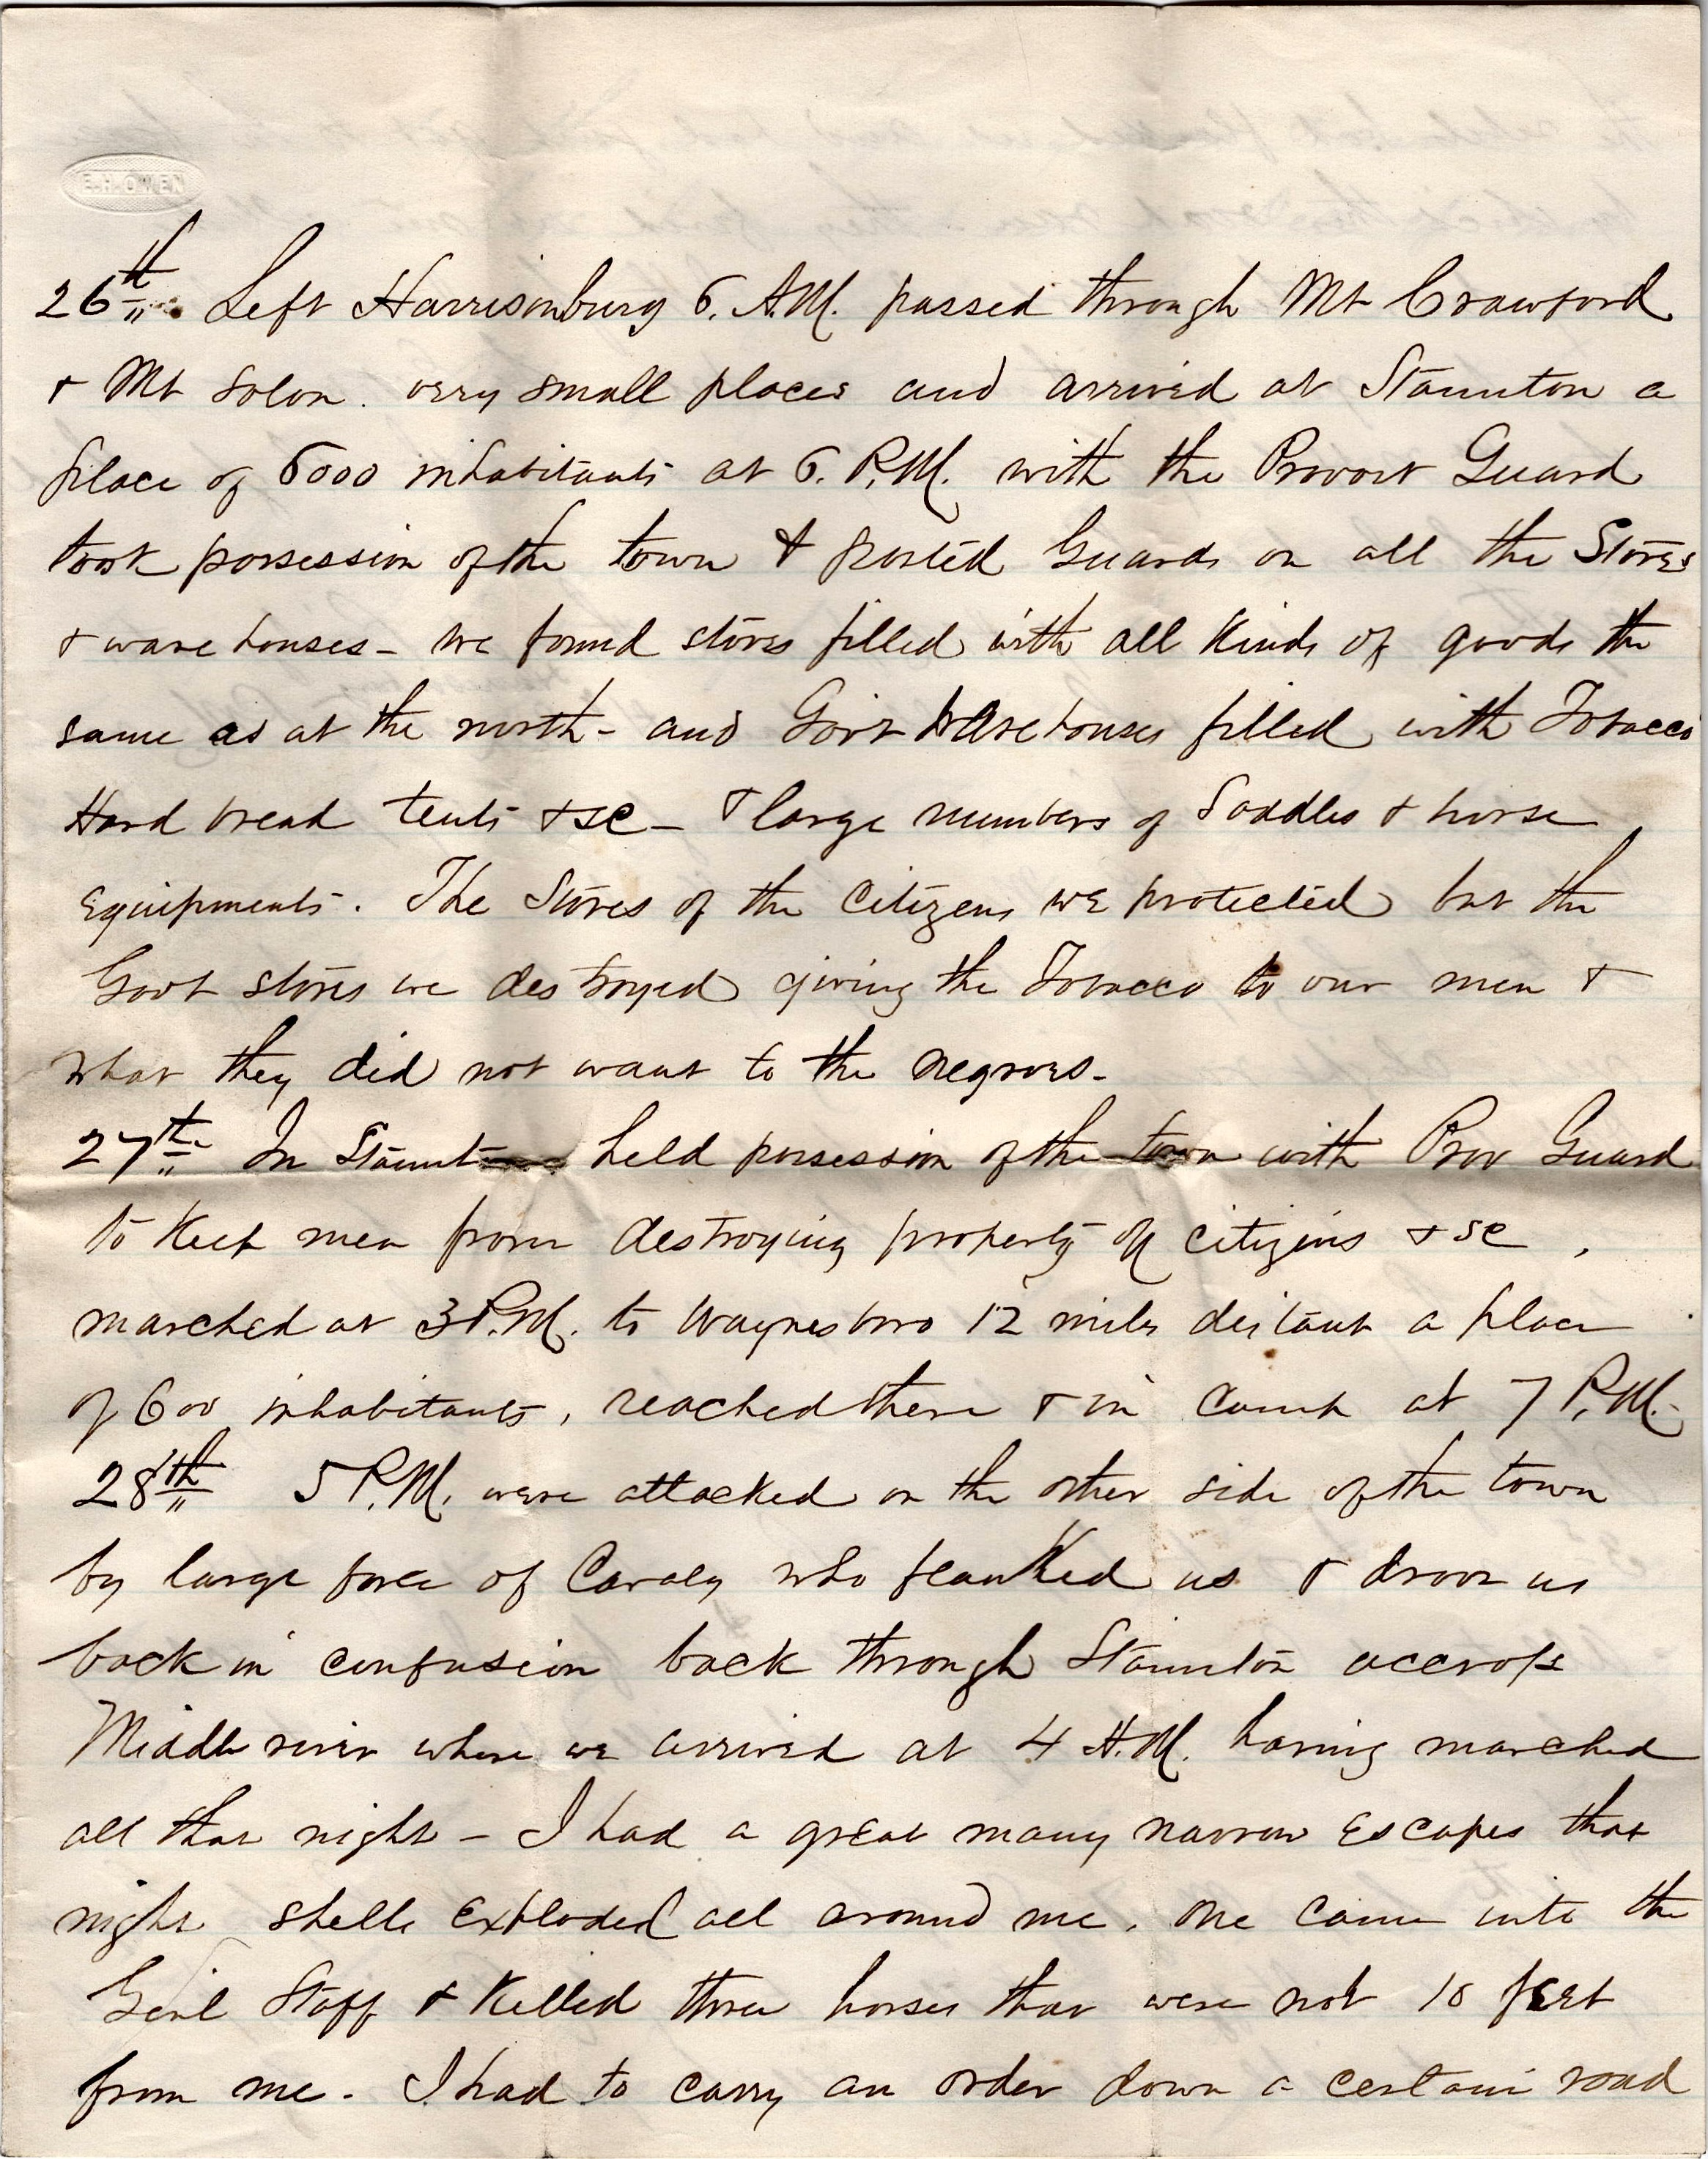 E.H.OWEN
26th Left Harrisonburg 6. A.M. passed through Mt Crawford
& Mt Solon. very small places and arrived at Staunton a
place of 6000 inhabitants at 6. P.M. with the Provost Guard
took possession of the town & posted Guards on all the Stores
& ware houses - we found stores filled with all kinds of goods the
same as at the north - and Govt Warehouses filled with Tobacco
Hard bread tents &sc - & large numbers of Saddles & horse
Equipments. The Stores of the Citizens we protected but the
Govt stores we destroyed giving the Tobacco to our men &
what they did not want to the negroes -
27th In Staunton held possession of the town with Prov Guard
to Keep men from destroying property of citizens &sc,
marched at 3 P.M. to Waynesboro 12 miles distant a place
of 600 inhabitants, reached there & in camp at 7 P.M.
28th 5 P.M. were attacked on the other side of the town
by large force of Cavaly who flanked us & drove us
back in confusion back through Staunton accross
Middle river where we arrived at 4 A.M. having marched
all that night - I had a great many narrow Escapes that
night shells Exploded all around me, one came into the
Genl Staff & Killed three horses that were not 10 feet
from me. I had to carry an order down a certain road